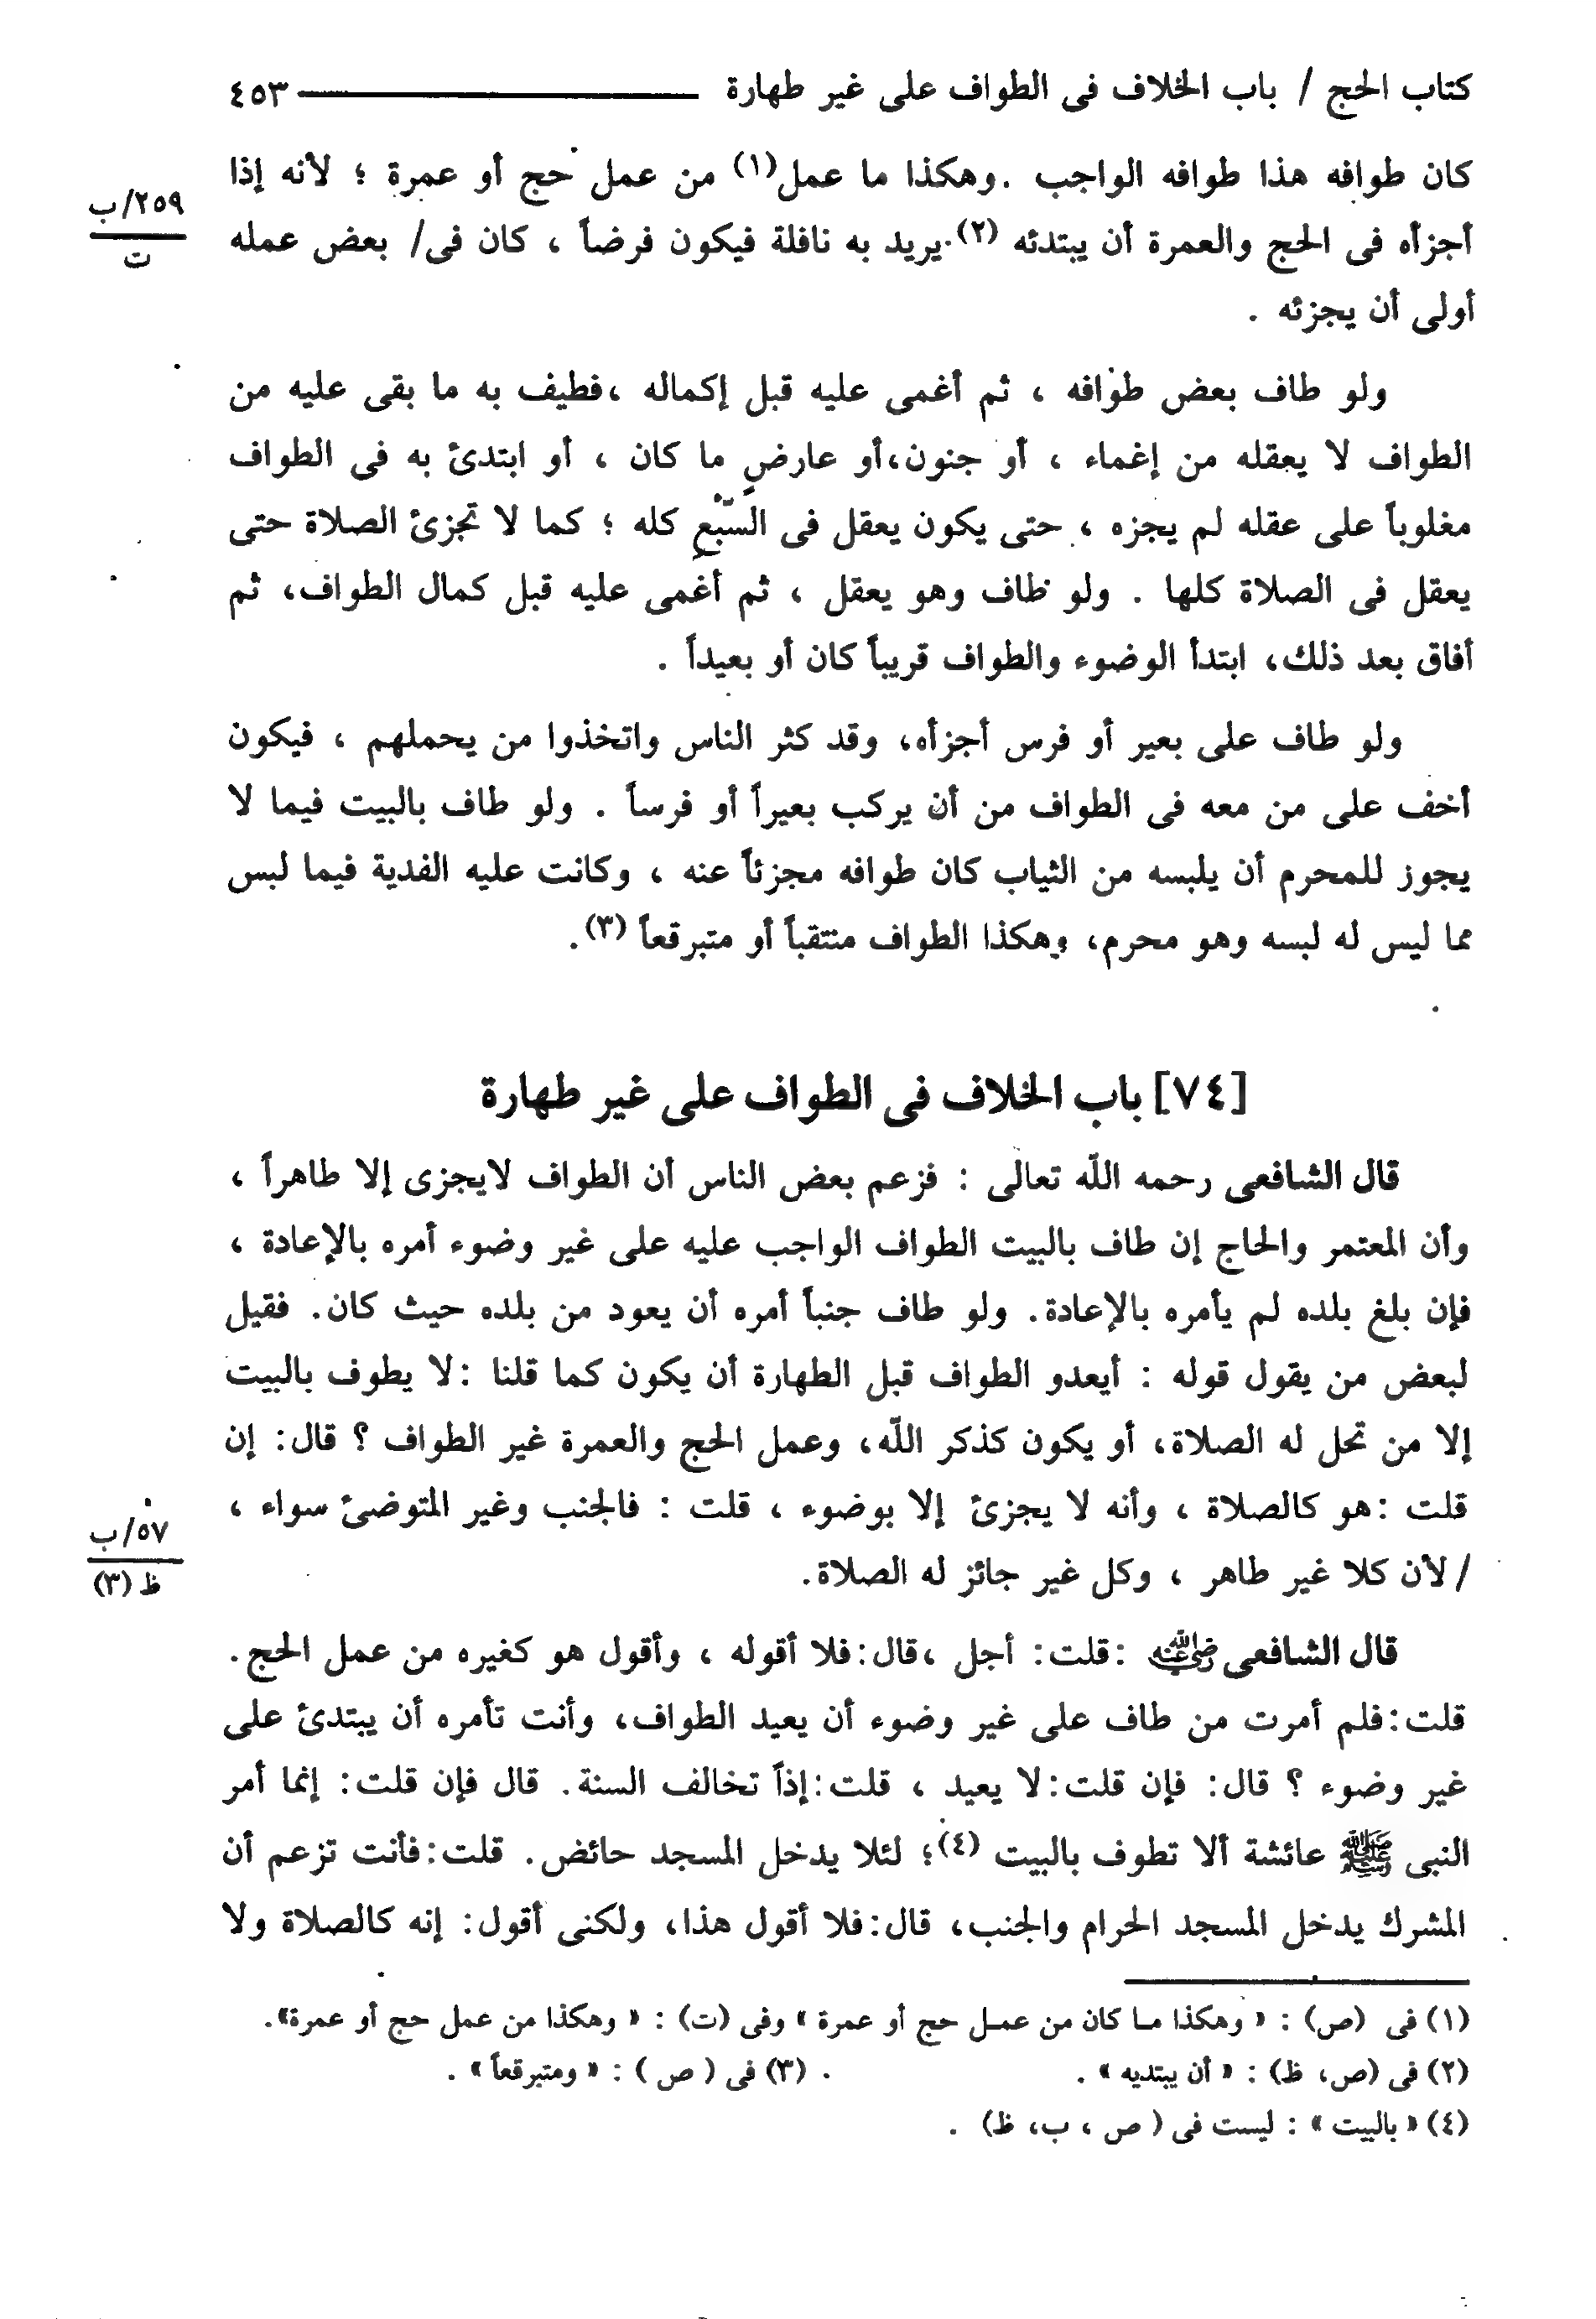 كتاب الحج / باب الخلاف فى الطواف على غير طهارة ـــــــ ٤٥٣
كان طوافه هذا طوافه الواجب . وهكذا ما عمل(١) من عمل حج أو عمرة ؛ لأنه إذا
أجزأه فى الحج والعمرة أن يبتدئه (٢) . يريد به نافلة فيكون فرضاً ، كان فى/ بعض عمله
٢٥٩/ب
ت
أولى أن يجزئه .
ولو طاف بعض طوافه ، ثم أغمى عليه قبل إكماله ،فطيف به ما بقى عليه من
الطواف لا يعقله من إغماء ، أو جنون،أو عارضٍ ما كان ، أو ابتدئ به فى الطواف
مغلوباً على عقله لم يجزه ، حتى يكون يعقل فى السَّبْعِ كله ؛ كما لا تجزئ الصلاة حتى
يعقل فى الصلاة كلها . ولو طاف وهو يعقل ، ثم أغمى عليه قبل كمال الطواف، ثم
أفاق بعد ذلك، ابتدأ الوضوء والطواف قريباً كان أو بعيداً .
ولو طاف على بعير أو فرس أجزأه، وقد كثر الناس واتخذوا من يحملهم ، فيكون
أخف على من معه فى الطواف من أن يركب بعيراً أو فرساً . ولو طاف بالبيت فيما لا
يجوز للمحرم أن يلبسه من الثياب كان طوافه مجزئاً عنه ، وكانت عليه الفدية فيما لبس
مما ليس له لبسه وهو محرم، وهكذا الطواف منتقباً أو متبرقعاً (٣).
[٧٤] باب الخلاف فى الطواف على غير طهارة
قال الشافعى رحمه اللّه تعالى : فزعم بعض الناس أن الطواف لايجزى إلا طاهراً ،
وأن المعتمر والحاج إن طاف بالبيت الطواف الواجب عليه على غير وضوء أمره بالإعادة ،
فإن بلغ بلده لم يأمره بالإعادة. ولو طاف جنباً أمره أن يعود من بلده حيث كان. فقيل
لبعض من يقول قوله : أيعدو الطواف قبل الطهارة أن يكون كما قلنا :لا يطوف بالبيت
إلا من تحل له الصلاة، أو يكون كذكر اللّه، وعمل الحج والعمرة غير الطواف ؟ قال: إن
قلت :هو كالصلاة ، وأنه لا يجزئ إلا بوضوء ، قلت : فالجنب وغير المتوضئ سواء ،
٥٧/ب
ظ (٣)
/ لأن كلا غير طاهر ، وكل غير جائز له الصلاة.
قال الشافعى رضي الله عنه :قلت: أجل ،قال:فلا أقوله ، وأقول هو كغيره من عمل الحج.
قلت:فلم أمرت من طاف على غير وضوء أن يعيد الطواف، وأنت تأمره أن يبتدئ على
غير وضوء ؟ قال: فإن قلت:لا يعيد ، قلت:إذاً تخالف السنة. قال فإن قلت: إنما أمر
النبى ﷺ عائشة ألا تطوف بالبيت (٤)؛ لئلا يدخل المسجد حائض. قلت:فأنت تزعم أن
المشرك يدخل المسجد الحرام والجنب، قال:فلا أقول هذا، ولكنى أقول: إنه كالصلاة ولا
(١) فى (ص) : « وهكذا ما كان من عمل حج أو عمرة » وفى (ت) : « وهكذا من عمل حج أو عمرة».
(٢) فى (ص، ظ) : « أن يبتديه » . (٣) فى ( ص ) : « ومتبرقعاً » .
(٤) « بالبيت » : ليست فى ( ص ، ب، ظ) .